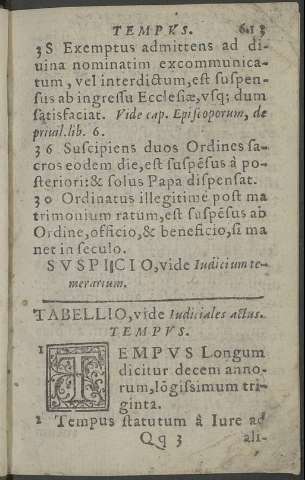 TEMPVS. 613
3S Exemptus admittens ad di-
uina nominatim excommunica-
tum, vel interdictum, est suspen-
sus ab ingressu Ecclesiæ, vsq; dum
satisfaciat. Vide cap. Episcoporum, de
priuil. lib. 6.
36 Suscipiens duos Ordines sa-
cros eodem die, est suspẽsus à po-
steriori: & solus Papa dispensat.
30 Ordinatus illegitimè post ma
trimonium ratum, est suspẽsus ab
Ordine, officio, & beneficio, si ma
net in seculo.
SVSPICIO, vide Iudicium te-
merarium.
TABELLIO, vide Iudiciales actus.
TEMPVS.
1 TEMPVS Longum
dicitur decem anno-
rum, lõgissimum tri-
ginta.
2 Tempus statutum â Iure ad
Qq 3 ali-